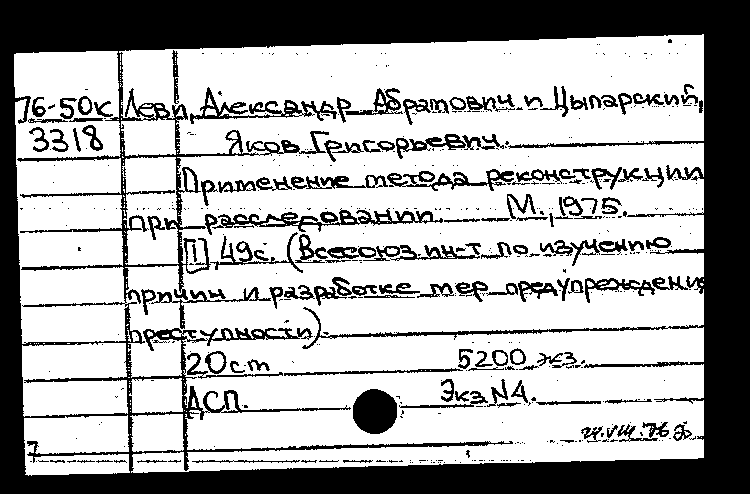 76-50к Леви, Александр Абрамович и Цыпарский,
3318 Яков Григорьевич.
Применение метода реконструкции
при расследовании. М., 1975.
[1], 49с. (Всесоюз ин-т по изучению
причин и разработке мер предупреждения
преступности).
20см 5200 экз.
ДСП. Экз N4.
24.VIII.76
7